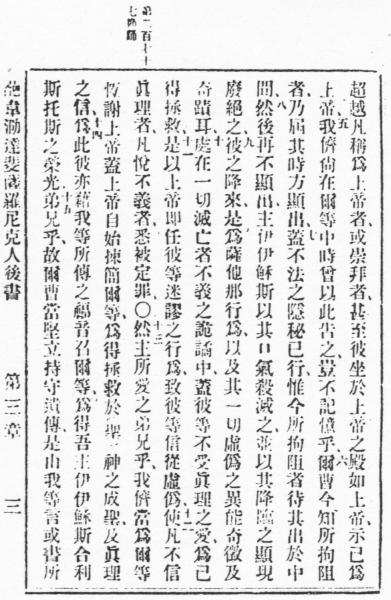 第二百七十
七 誦
超越凡稱爲上帝者、或崇拜者、甚至彼坐於上帝之殿如上帝、示己爲
上帝。五我儕尙在爾等中時、曾以此告之、豈不記憶乎、六爾曹今知所拘阻
者、乃屆其時方顯出、七蓋不法之隱秘已行、惟今所拘阻者、待其出於中
間、八然後再不顯出、主伊伊穌斯以其口氣殺滅之、並以其降臨之顯現
廢絕之、九彼之降來、是爲薩他那行爲、以及其一切虛僞之異能奇徵及
奇蹟耳、十處在一切滅亡者不義之詭譎中、蓋彼等不受眞理之愛、爲己
得拯救、十一是以上帝即任彼等迷謬之行爲、致彼等信從虛僞、十二使凡不信
眞理者、凡悅不義者、悉被定罪○十三然主所愛之弟兄乎、我儕當爲爾等
恆謝上帝、蓋上帝自始揀簡爾等、爲得拯救、於聖神之成聖、及眞理
之信、十四爲此彼亦藉我等所傳之福音召爾等、爲得吾主伊伊穌斯合利
斯托斯之榮光、十五弟兄乎、故爾曹當堅立持守遺傳、是由我等言或書所
達斐薩羅尼克人後書 第三章 三